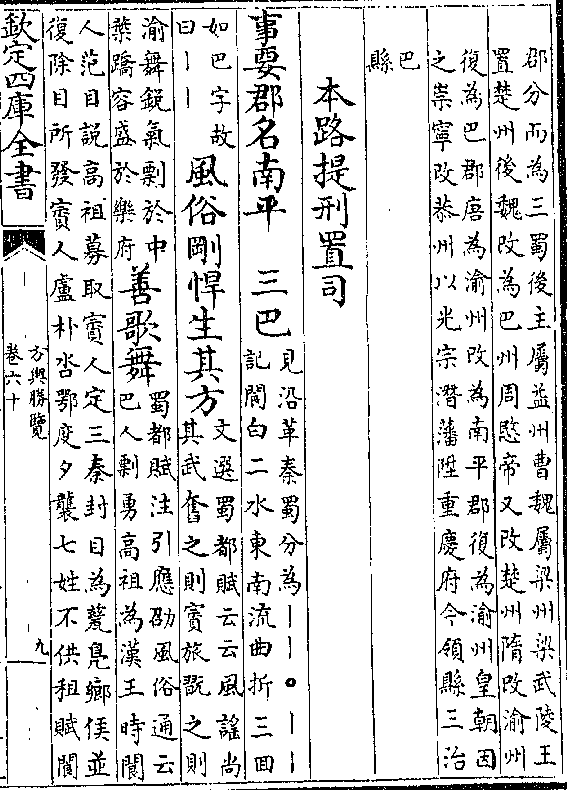 郡分而為三蜀後主屬益州曹魏屬梁州梁武陵王
置楚州後魏改為巴州周愍帝又改楚州隋改渝州
復為巴郡唐為渝州改為南平郡復為渝州皇朝因
之崇寧改恭州以光宗潛藩陞重慶府今領縣三治
巴
縣
本路提刑置司
事要郡名南平 三巴
見沿革秦蜀分為丨丨。丨丨
記閬白二水東南流曲折三回
如巴字故
曰丨丨
風俗剛悍生其方
文選蜀都賦云云風謠尚
其武奮之則賨旅翫之則
渝舞銳氣剽於中
葉蹻容盛於樂府
善歌舞
蜀都賦注引應劭風俗通云
巴人剽勇高祖為漢王時閬
人范目說高祖募取賨人定三秦封目為鳧鄉侯並
復除目所發賨人盧朴沓鄂度夕襲七姓不供租賦閬
欽定四庫全書
方輿勝覽
卷六十
九